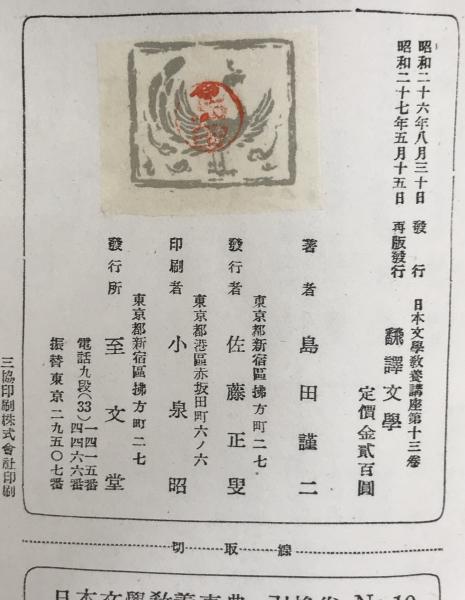 昭和二十六年八月三十日 發行
昭和二十七年五月十五日 再版發行
日本文學教養講座第十三卷
飜譯文學
定價金貳百圓
著者 島田謹二
東京都新宿區拂方町二七
發行者 佐藤正叟
東京都港區赤坂田町六ノ六
印刷者 小泉昭
東京都新宿區拂方町二七
發行所 至文堂
電話九段(33)一四一五番
四四六六番
振替東京二九五〇七番
三協印刷株式會社印刷
切取線